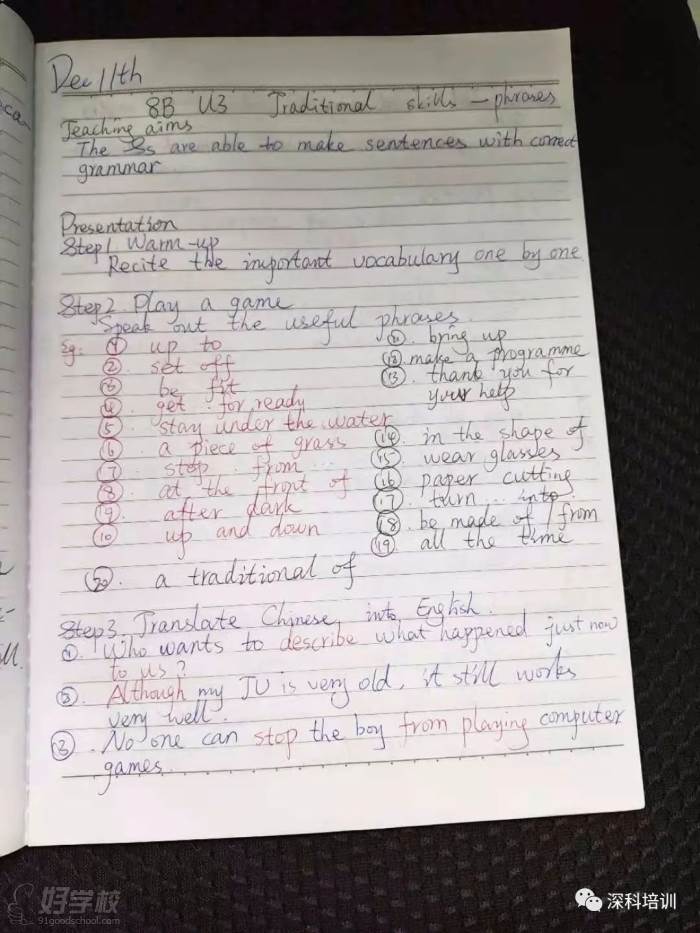 Dec 11th
8B U3 Traditional skills - phrases
Teaching aims
The Ss are able to make sentences with correct
grammar
Presentation
Step1. Warm-up
Recite the important vocabulary one by one
Step2. Play a game
Speak out the useful phrases.
Eg: ① up to
② set off
③ be fit
④ get . for ready
⑤ stay under the water
⑥ a piece of grass
⑦ stop . from ...
⑧ at the front of
⑨ after dark
⑩ up and down
⑪ bring up
⑫ make a programme
⑬ thank you for
your help
⑭ in the shape of
⑮ wear glasses
⑯ paper cutting
⑰ turn ... into
⑱ be made of / from
⑲ all the time
⑳ a traditional of
Step3. Translate Chinese into English.
① Who wants to describe what happened just now
to us?
② Although my TV is very old, it still works
very well.
③ No one can stop the boy from playing computer
games.
ca-
ll.
好学校
91goodschool.com
深科培训